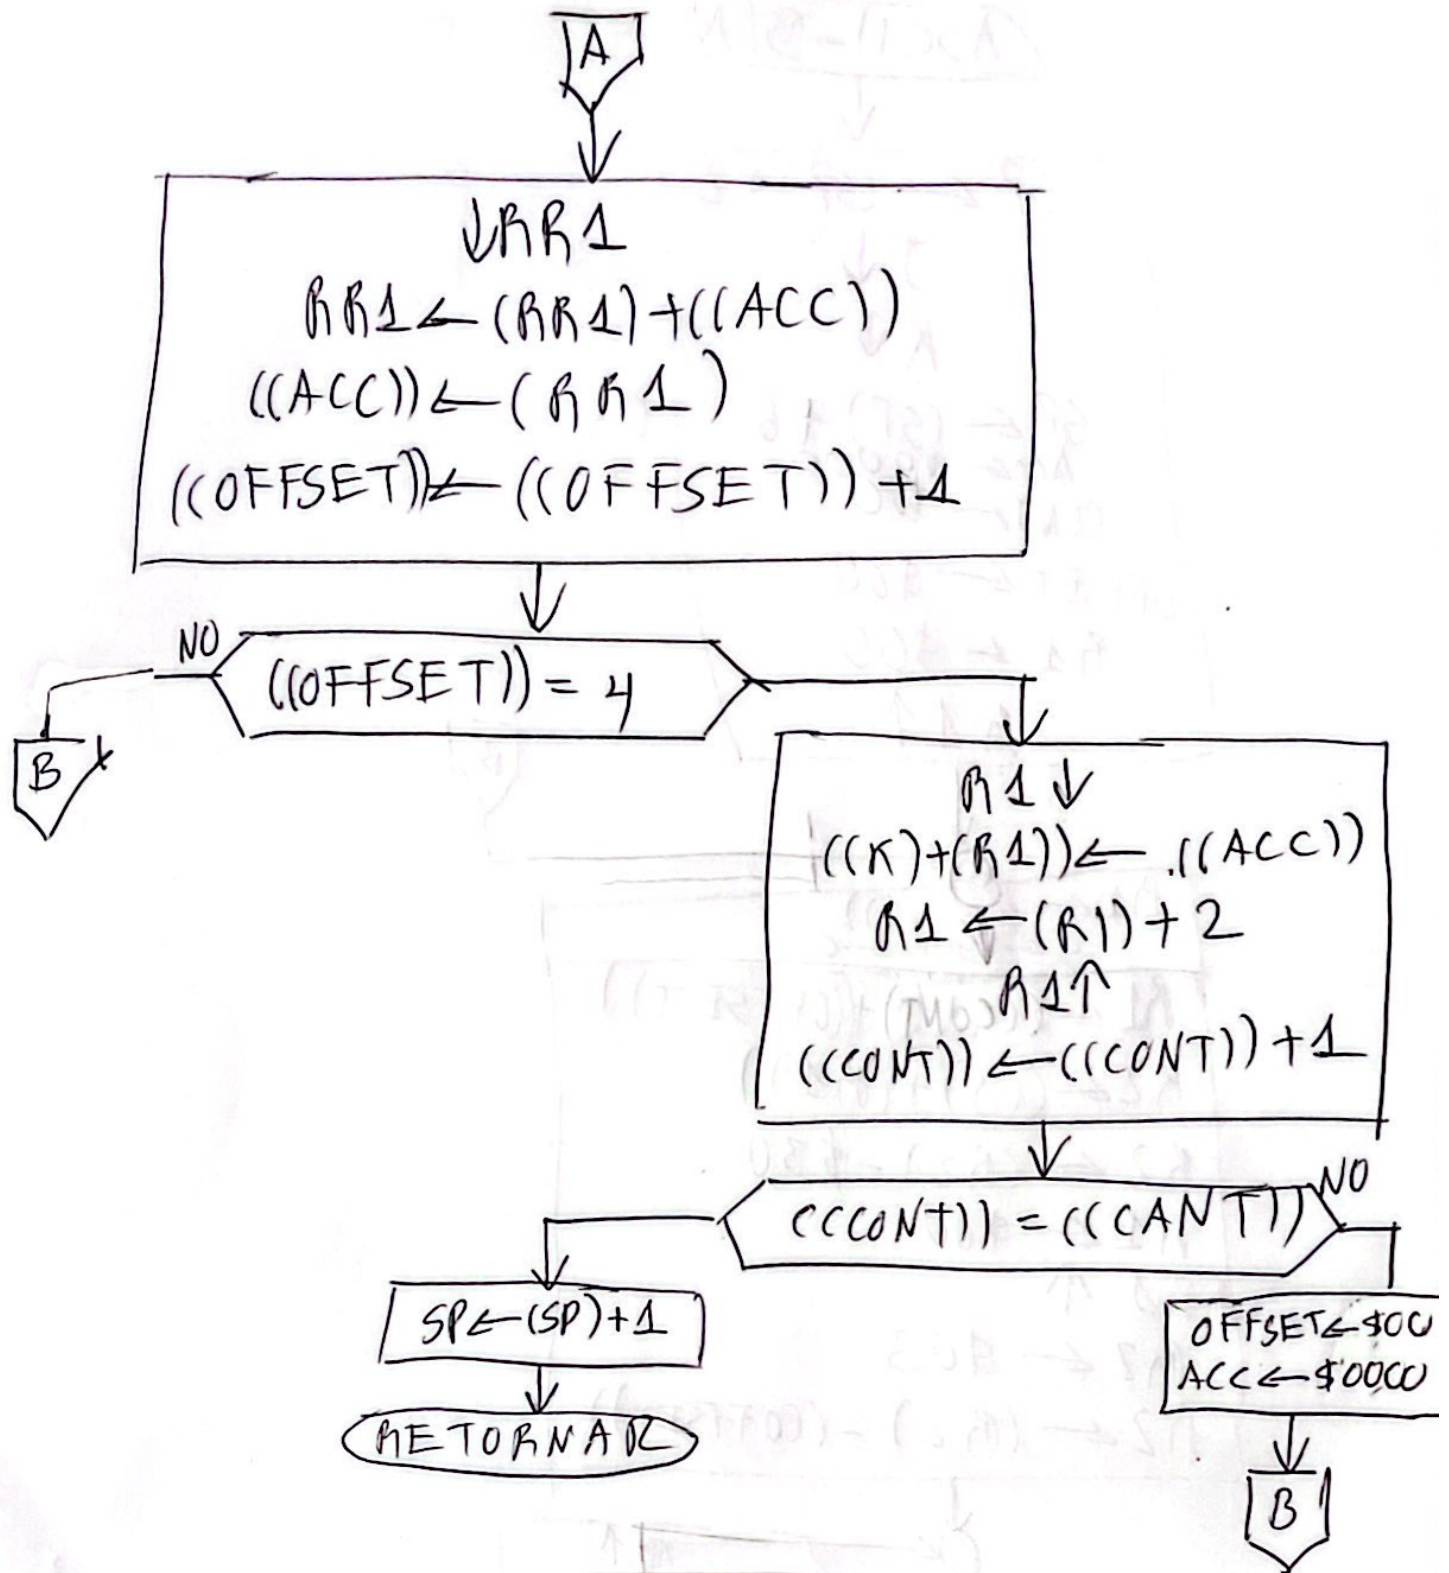 A
↓RR1
RR1←(RR1)+((ACC))
((ACC))←(RR1)
((OFFSET))←((OFFSET))+1
NO
((OFFSET))=4
B
R1↓
((K)+(R1))←((ACC))
R1←(R1)+2
R1↑
((CONT))←((CONT))+1
NO
((CONT))=((CANT))
SP←(SP)+1
OFFSET←$00
ACC←$0000
RETORNAR
B